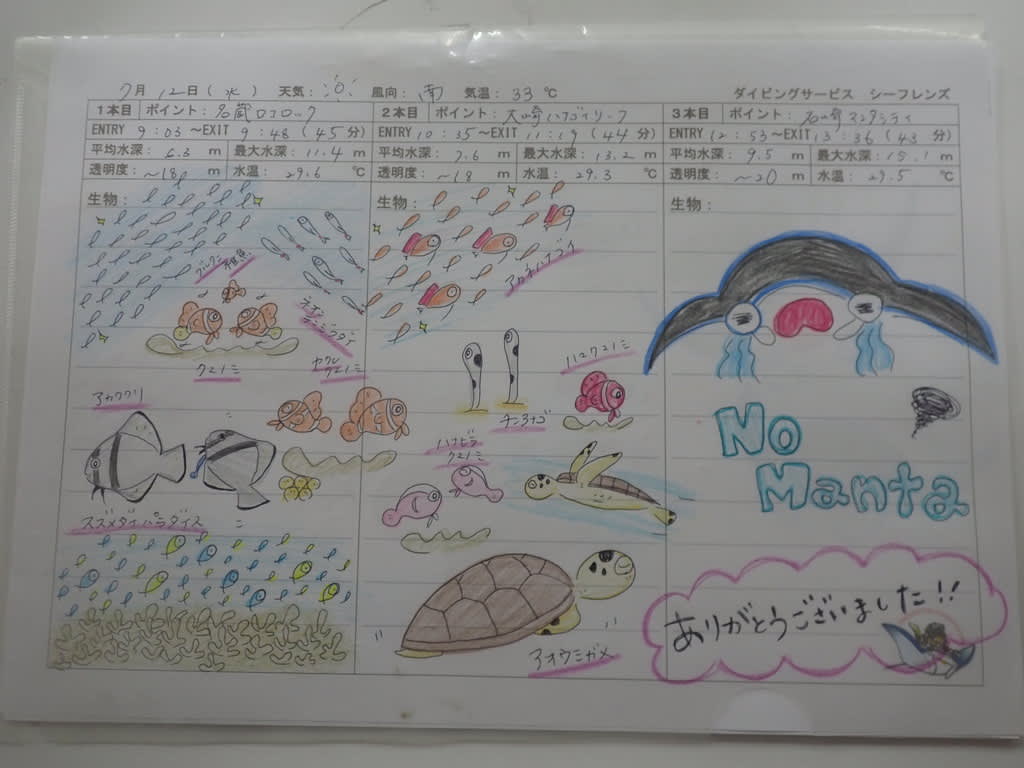 7月 12日(水) 天気: 風向: 南 気温: 33 ℃ ダイビングサービス シーフレンズ
1本目 ポイント: 名蔵ロコロック
ENTRY 9:03 ～EXIT 9:48 (45分)
平均水深: 6.3 m 最大水深: 11.4 m
透明度: ～18 m 水温: 29.6 ℃
生物:
グルクン
稚魚
クマノミ
ヤクレ
クマノミ
アカククリ
スズメダイパラダイス
2本目 ポイント: 大崎ハナゴイリーフ
ENTRY 10:35 ～EXIT 11:19 (44分)
平均水深: 7.6 m 最大水深: 13.2 m
透明度: ～18 m 水温: 29.3 ℃
生物:
アカネハナゴイ
ハマクマノミ
チンアナゴ
ハナビラ
クマノミ
アオウミガメ
3本目 ポイント: 石崎マンタシティ
ENTRY 12:53 ～EXIT 13:36 (43分)
平均水深: 9.5 m 最大水深: 15.1 m
透明度: ～20 m 水温: 29.5 ℃
生物:
No
Manta
ありがとうございました!!